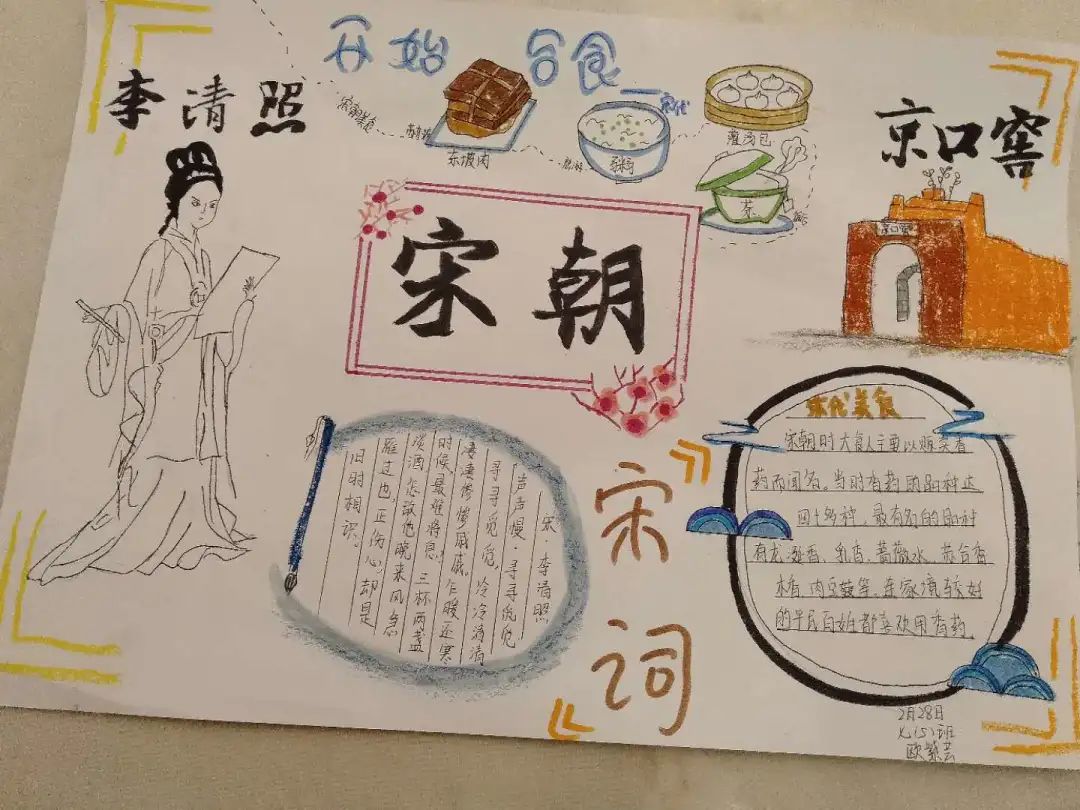 开始 合食
李清照
宋朝美食
东坡肉
粥
宋代
灌汤包
茶
京口窑
京口窑
宋朝
宋 李清照
声声慢·寻寻觅觅
寻寻觅觅，冷冷清清
凄凄惨惨戚戚。乍暖还寒
时候，最难将息。三杯两盏
淡酒，怎敌他晚来风急
雁过也，正伤心，却是
旧时相识。
宋词
宋代美食
宋朝时大食人主要以贩卖香
药而闻名。当时香药的品种达
四十多种，最有名的品种
有龙涎香、乳香、蔷薇水、苏合香
木香、肉豆蔻等，连家境较好
的平民百姓都喜欢用香药。
2月28日
(5)班